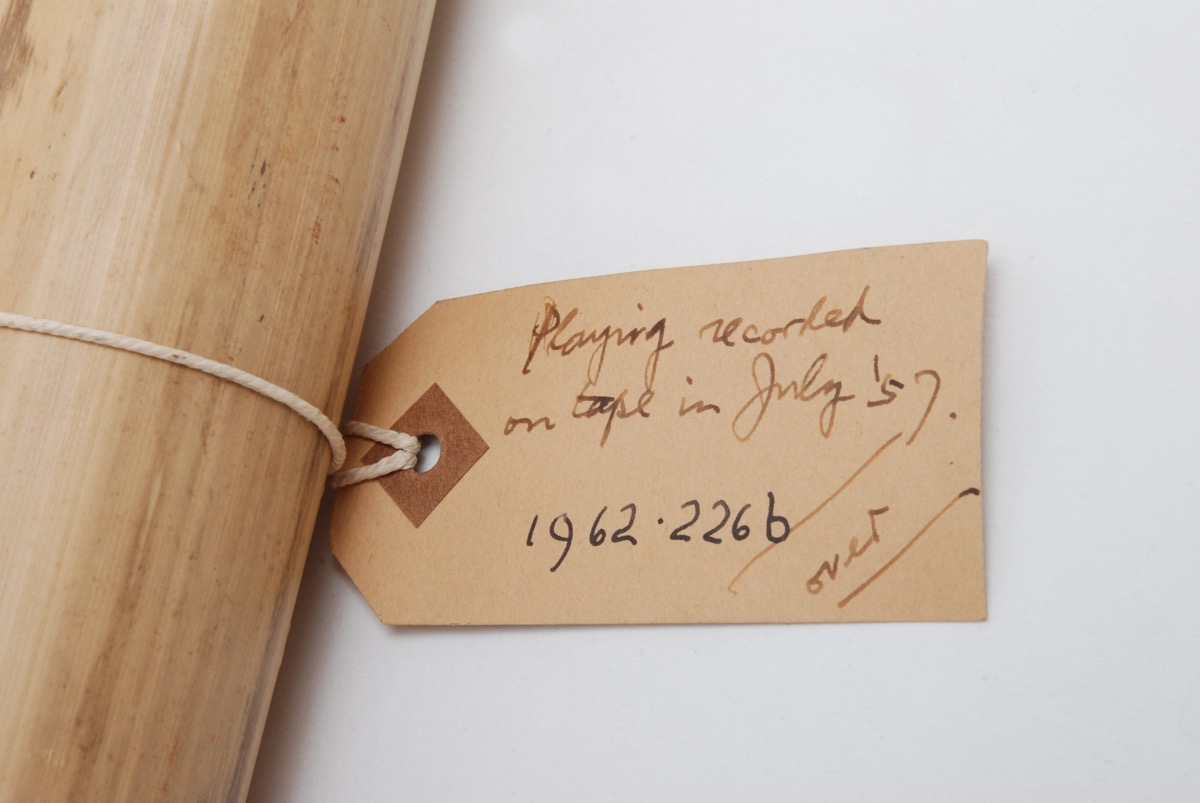 Playing recorded
on tape in July '57.
1962.226b
over